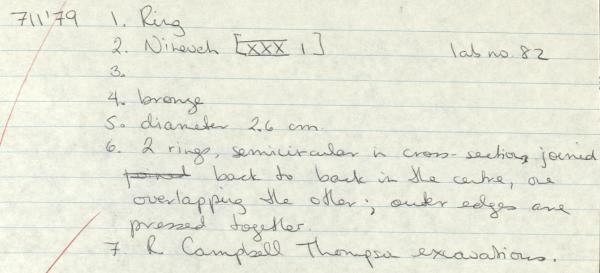 711'79 1. Ring
2. Nineveh [XXX 1] lab no. 82
3.
4. bronze
5. diameter 2.6 cm
6. 2 rings, semicircular in cross-section, joined
joined back to back in the centre, one
overlapping the other; outer edges are
pressed together.
7. R Campbell Thompson excavations.